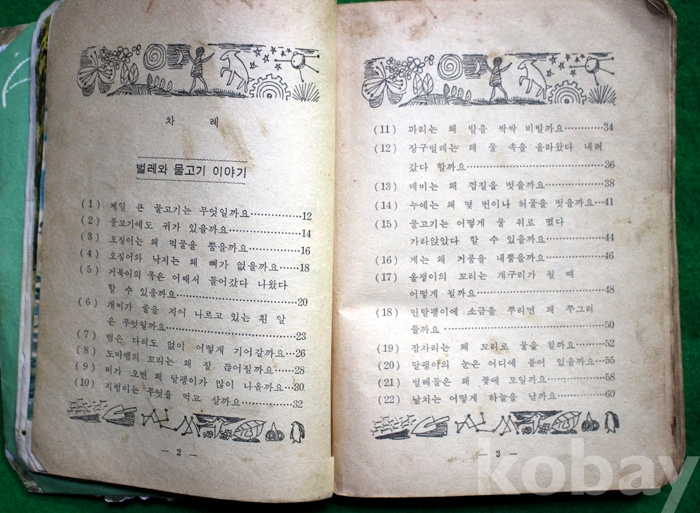 차 례
벌레와 물고기 이야기
(1) 제일 큰 물고기는 무엇일까요……………12
(2) 물고기에도 귀가 있을까요……………14
(3) 오징어는 왜 먹물을 뿜을까요……………16
(4) 오징어와 낙지는 왜 뼈가 없을까요……18
(5) 거북이의 목은 어째서 들어갔다 나왔다
할 수 있을까요……………20
(6) 개미가 줄을 지어 나르고 있는 흰 알
은 무엇일까요……………23
(7) 뱀은 다리도 없이 어떻게 기어갈까요…26
(8) 도마뱀의 꼬리는 왜 잘 끊어질까요……28
(9) 비가 오면 왜 달팽이가 많이 나올까요…30
(10) 지렁이는 무엇을 먹고 살까요……………32
— 2 —
(11) 파리는 왜 발을 싹싹 비빌까요…………34
(12) 장구벌레는 왜 물 속을 올라왔다 내려
갔다 할까요……………36
(13) 매미는 왜 껍질을 벗을까요……………38
(14) 누에는 왜 몇 번이나 허물을 벗을까요…41
(15) 물고기는 어떻게 물 위로 떴다
가라앉았다 할 수 있을까요……………44
(16) 게는 왜 거품을 내뿜을까요……………46
(17) 올챙이의 꼬리는 개구리가 될 때
어떻게 될까요……………48
(18) 민달팽이에 소금을 뿌리면 왜 쭈그러
들까요……………50
(19) 잠자리는 왜 꼬리로 물을 칠까요………52
(20) 달팽이의 눈은 어디에 붙어 있을까요…55
(21) 벌레들은 왜 꽃에 모일까요……………58
(22) 날치는 어떻게 하늘을 날까요……………60
— 3 —
kobay